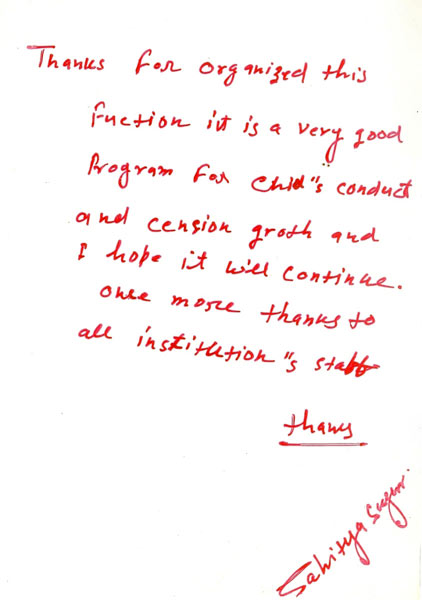 Thanks for organized this
fuction it is a very good
Program for Chid"s conduct
and cension groth and
I hope it will continue.
once more thanks to
all institletion"s staff
thanks
Sahitya